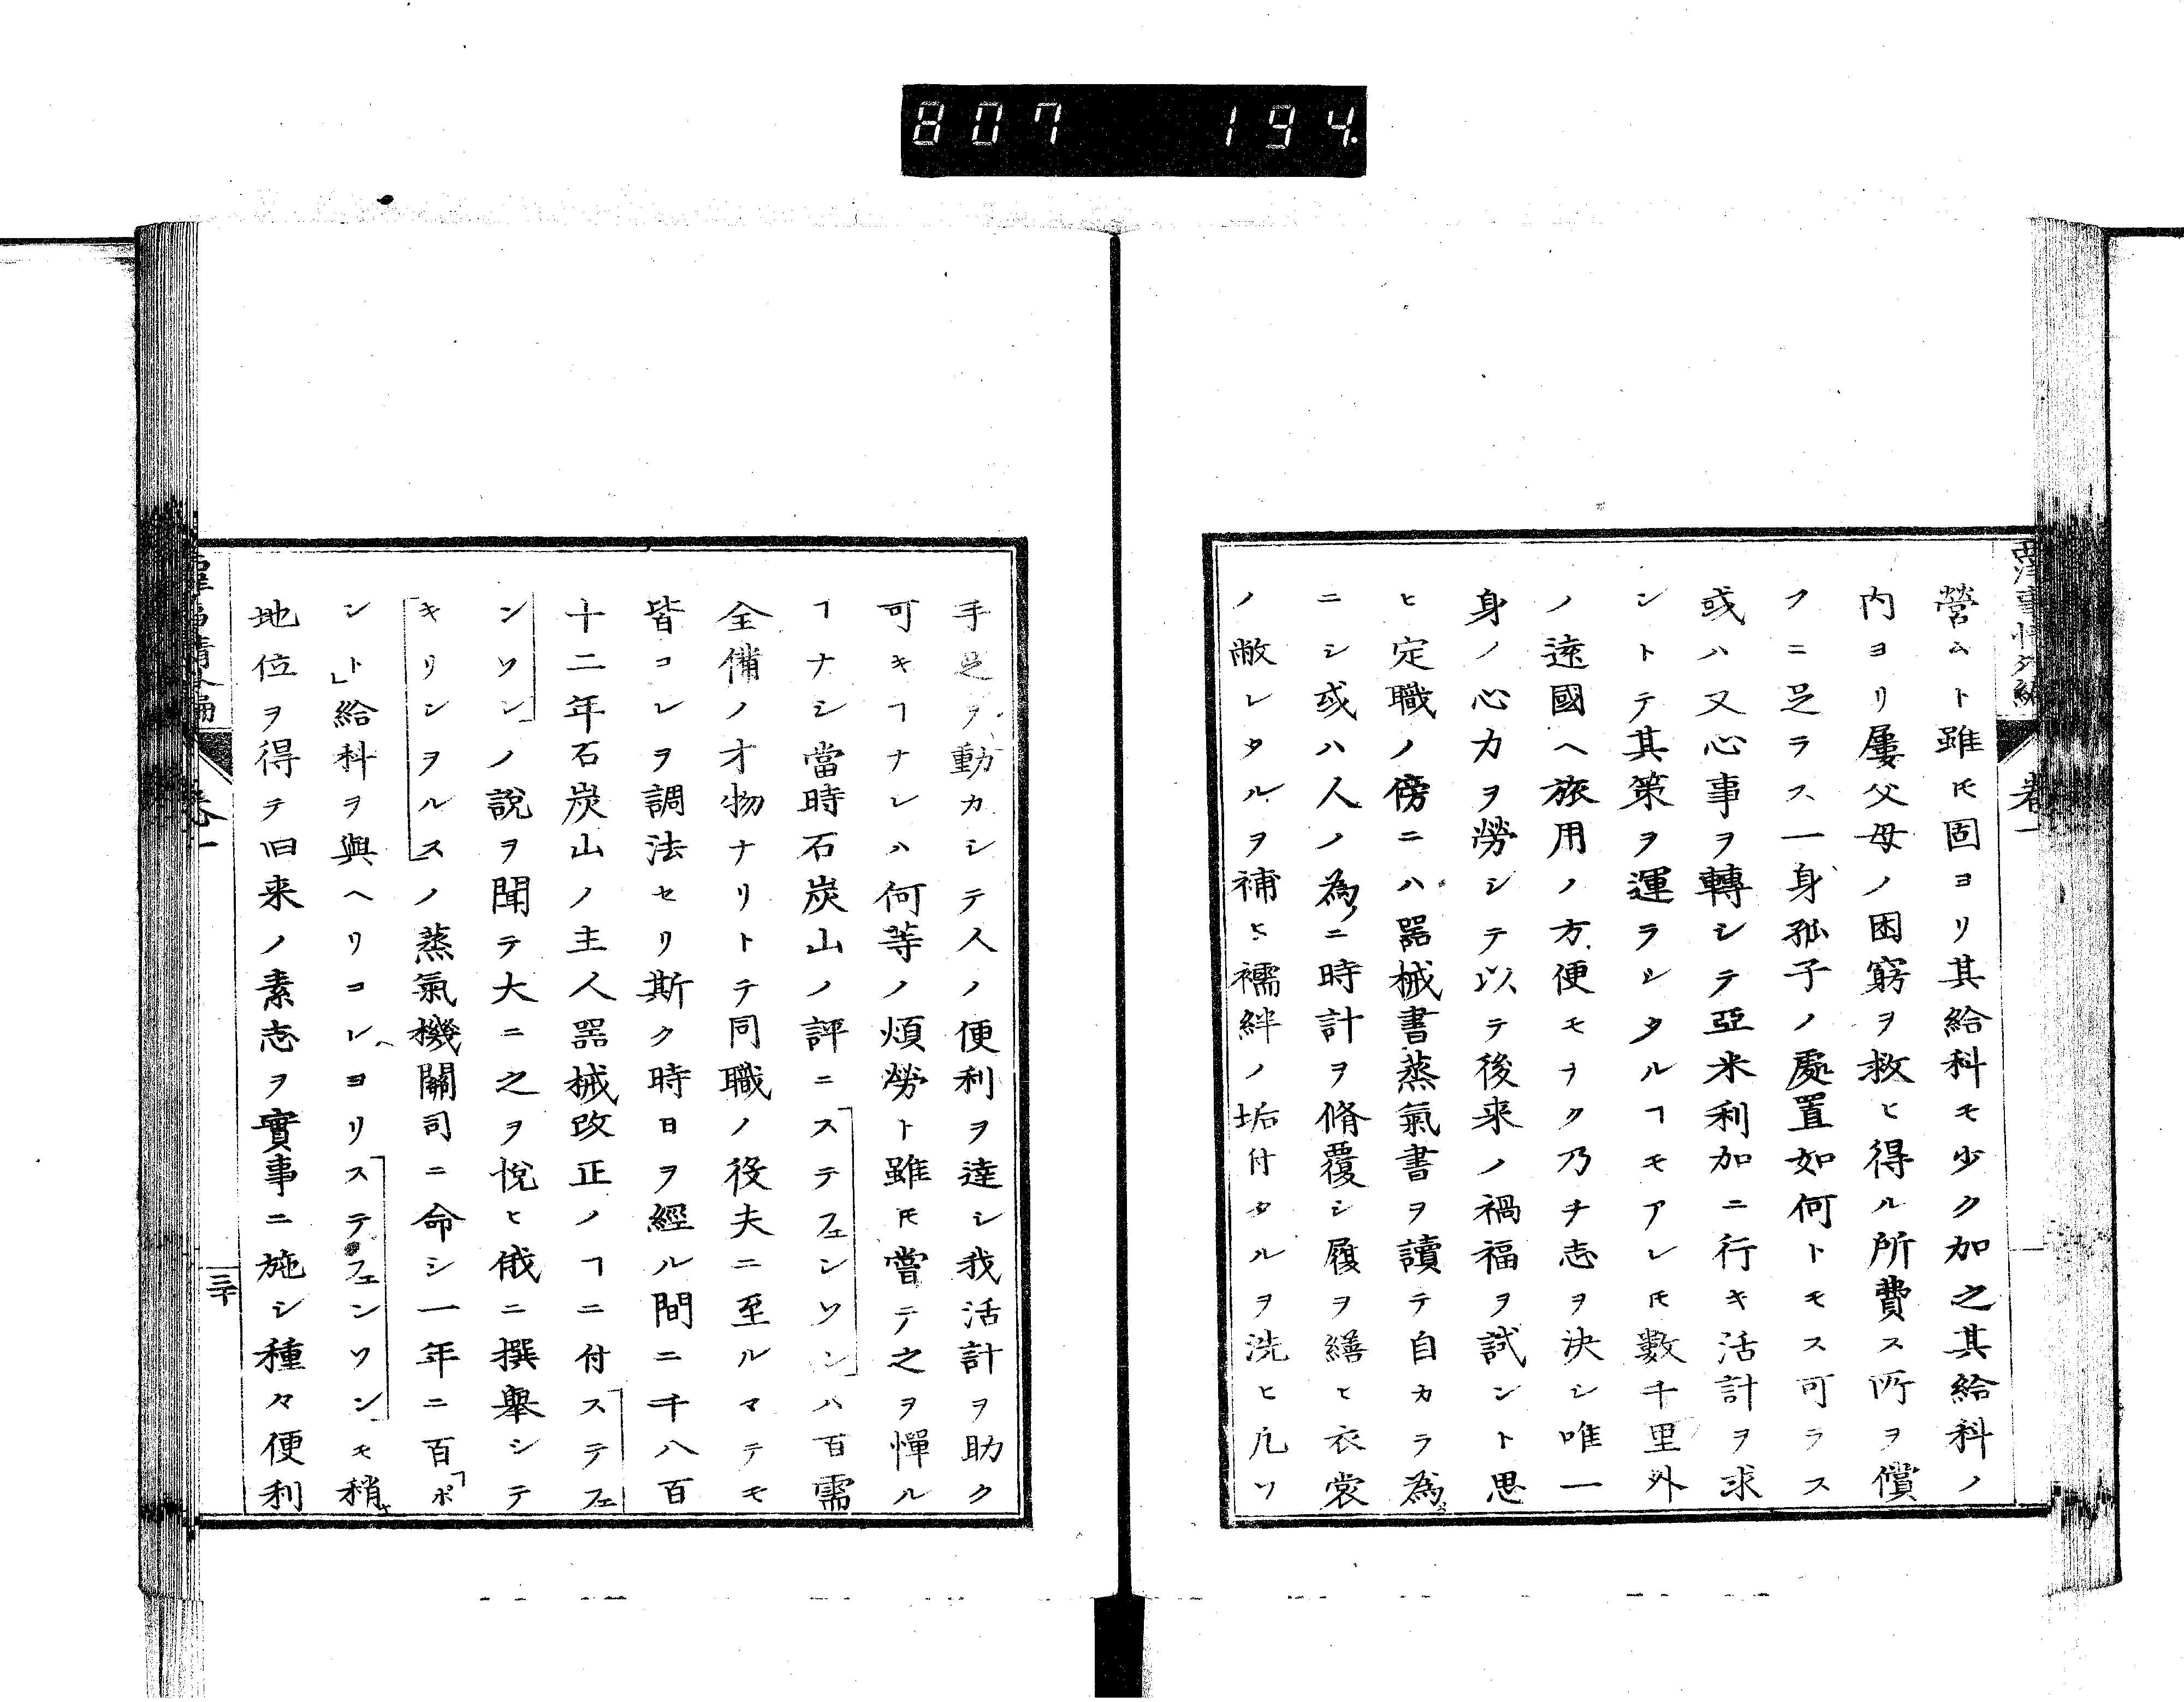 807 194.
西洋事情外編 巻一
營ムト雖𪜈固ヨリ其給料モ少ク加之其給料ノ
内ヨリ屢父母ノ困窮ヲ救ヒ得ル所費ス所ヲ償
フニ足ラス一身孤子ノ處置如何トモス可ラス
或ハ又心事ヲ轉シテ亞米利加ニ行キ活計ヲ求
ントテ其策ヲ運ラシタルヿモアレ𪜈數千里外
ノ遠國ヘ旅用ノ方便モナク乃チ志ヲ決シ唯一
身ノ心力ヲ勞シテ以テ後来ノ禍福ヲ試ント思
ヒ定職ノ傍ニハ器械書蒸氣書ヲ讀テ自カラ為
ニシ或ハ人ノ為ニ時計ヲ脩覆シ履ヲ繕ヒ衣裳
ノ敝レタルヲ補ヒ襦絆ノ垢付タルヲ洗ヒ凢ソ
手足ヲ動カシテ人ノ便利ヲ達シ我活計ヲ助ク
可キヿナレハ何等ノ煩勞ト雖𪜈嘗テ之ヲ憚ル
ヿナシ當時石炭山ノ評ニステフェンソンハ百需
全備ノオ物ナリトテ同職ノ役夫ニ至ルマテモ
皆コレヲ調法セリ斯ク時日ヲ經ル間ニ千八百
十二年石炭山ノ主人器械改正ノヿニ付ステフェ
ンソンノ說ヲ聞テ大ニ之ヲ悅ヒ俄ニ撰舉シテ
「キリンヲルスノ蒸氣機關司ニ命シ一年ニ百「ポ
ント」給料ヲ與ヘリコレヨリステフェンソンモ稍
地位ヲ得テ旧来ノ素志ヲ實事ニ施シ種々便利
巻一
三十